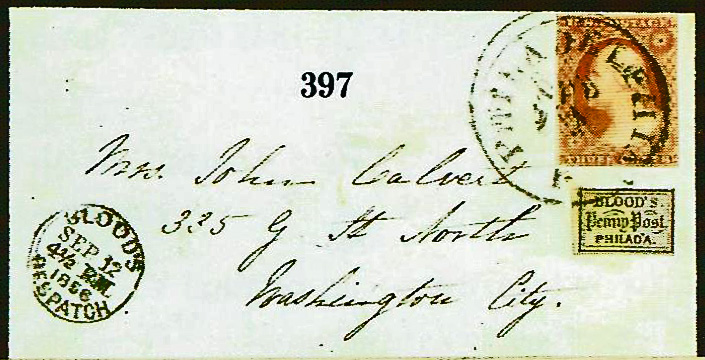 397
PHILADELPHIA
THREE CENTS
Mrs. John Calvert
325 G St North
Washington City.
BLOOD'S
Penny Post
PHILAD'A.
BLOOD'S
SEP 12
4½ P.M.
1856
DESPATCH